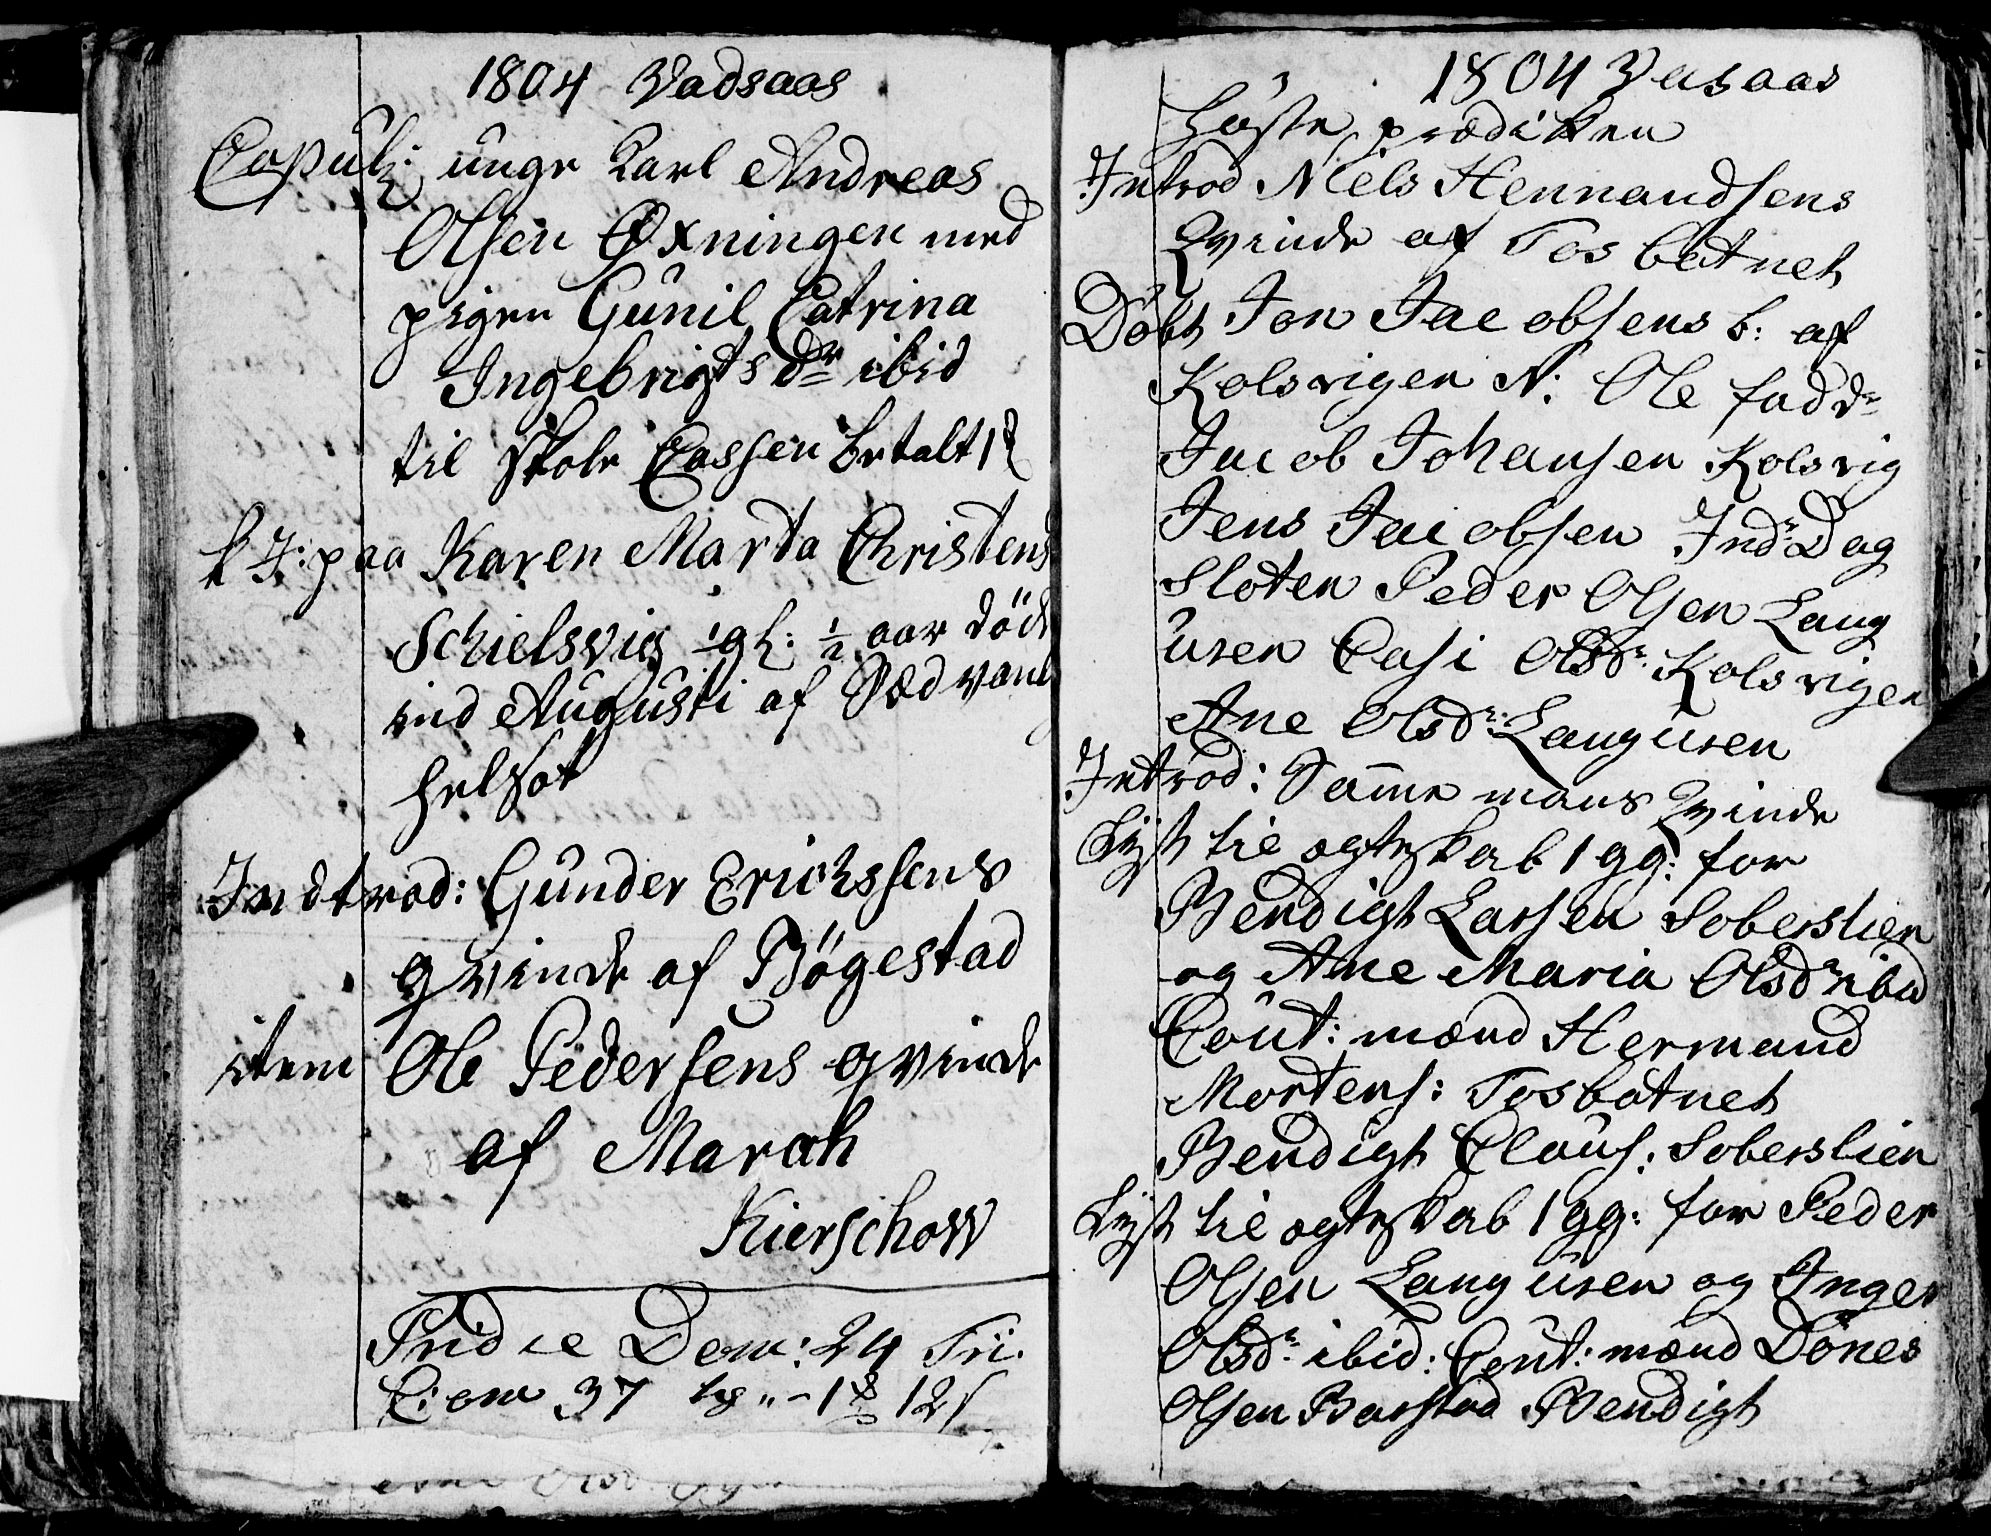 1804 Vadsaas
Copul: unge Karl Andreas
Olsen Øxningen med
pigen Gunil Catrina
Ingebrigts dr ibid
til Skole Cassen betalt 1
paa Karen Marta Christens
Schielsvig igl: 1/2 aar död
ind Augusti af Sædvanl
helsot
Indtrod: Gunder Erichssens
qvinde af Bögestad
item Ole Pedersens qvinde
af Marah
Kierschow
Pridie Dom: 24 Tri.
C: om 37 1 12 s
1804 Vasaas
Höste prædiken
Introd Niels Hennandsens
Qvinde af Tosbotnet
Döbt Jon Jacobsens b: af
Kolsvigen N: Ole fadd:
Jacob Johansen Kolsvig
Jens Jacobsen Indr Dag
sloten Peder Olsen Lang
üren Casi Olsdr Kolsvigen
Ane Olsdr: Langüren
Introd: Samme mans Qvinde
Lyst til ægteskab 1 gg: for
Bendigt Larsen Soberslien
og Ane Maria Olsdr ibid
Cout: mænd Hermand
Mortens: Tosbotnet
Bendigt Claus: Soberslien
Lyst til ægteskab 1 gg: for Peder
Olsen Langüren og Inger
Olsdr ibid: Cout: mænd Dönes
Olsen Barstad Bendigt